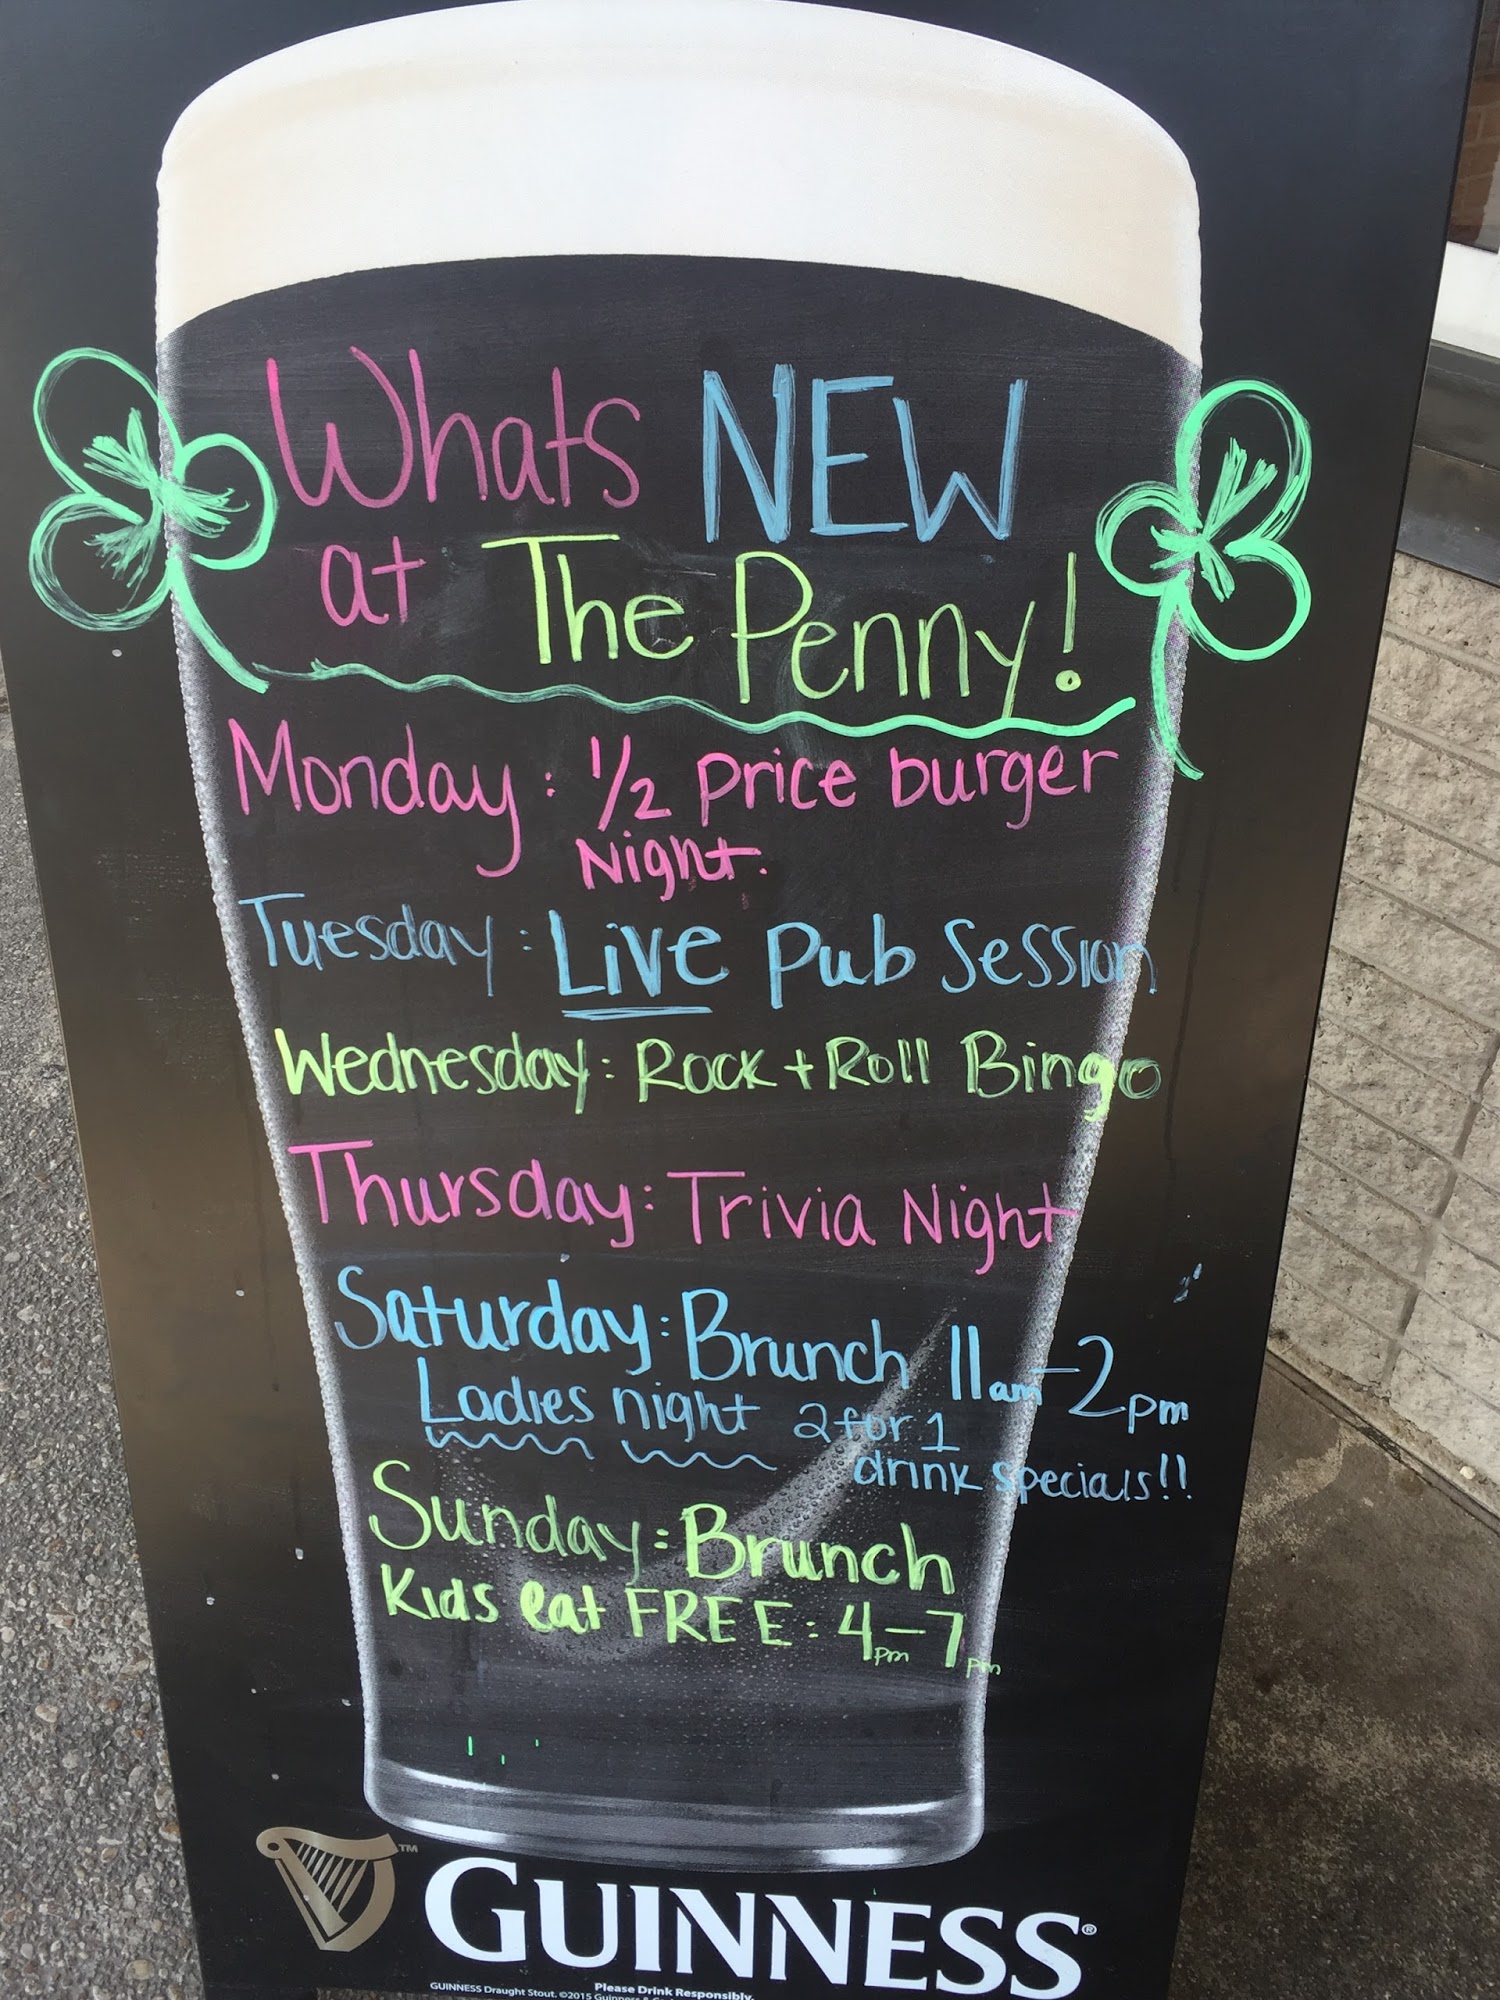 Whats NEW
at The Penny!
Monday: 1/2 price burger
Night.
Tuesday: Live Pub Session
Wednesday: Rock + Roll Bingo
Thursday: Trivia Night
Saturday: Brunch 11am-2pm
Ladies night 2 for 1
drink specials!!
Sunday: Brunch
Kids eat FREE: 4pm-7pm
TM
GUINNESS®
Please Drink Responsibly.
GUINNESS Draught Stout. ©2015 Guinness &